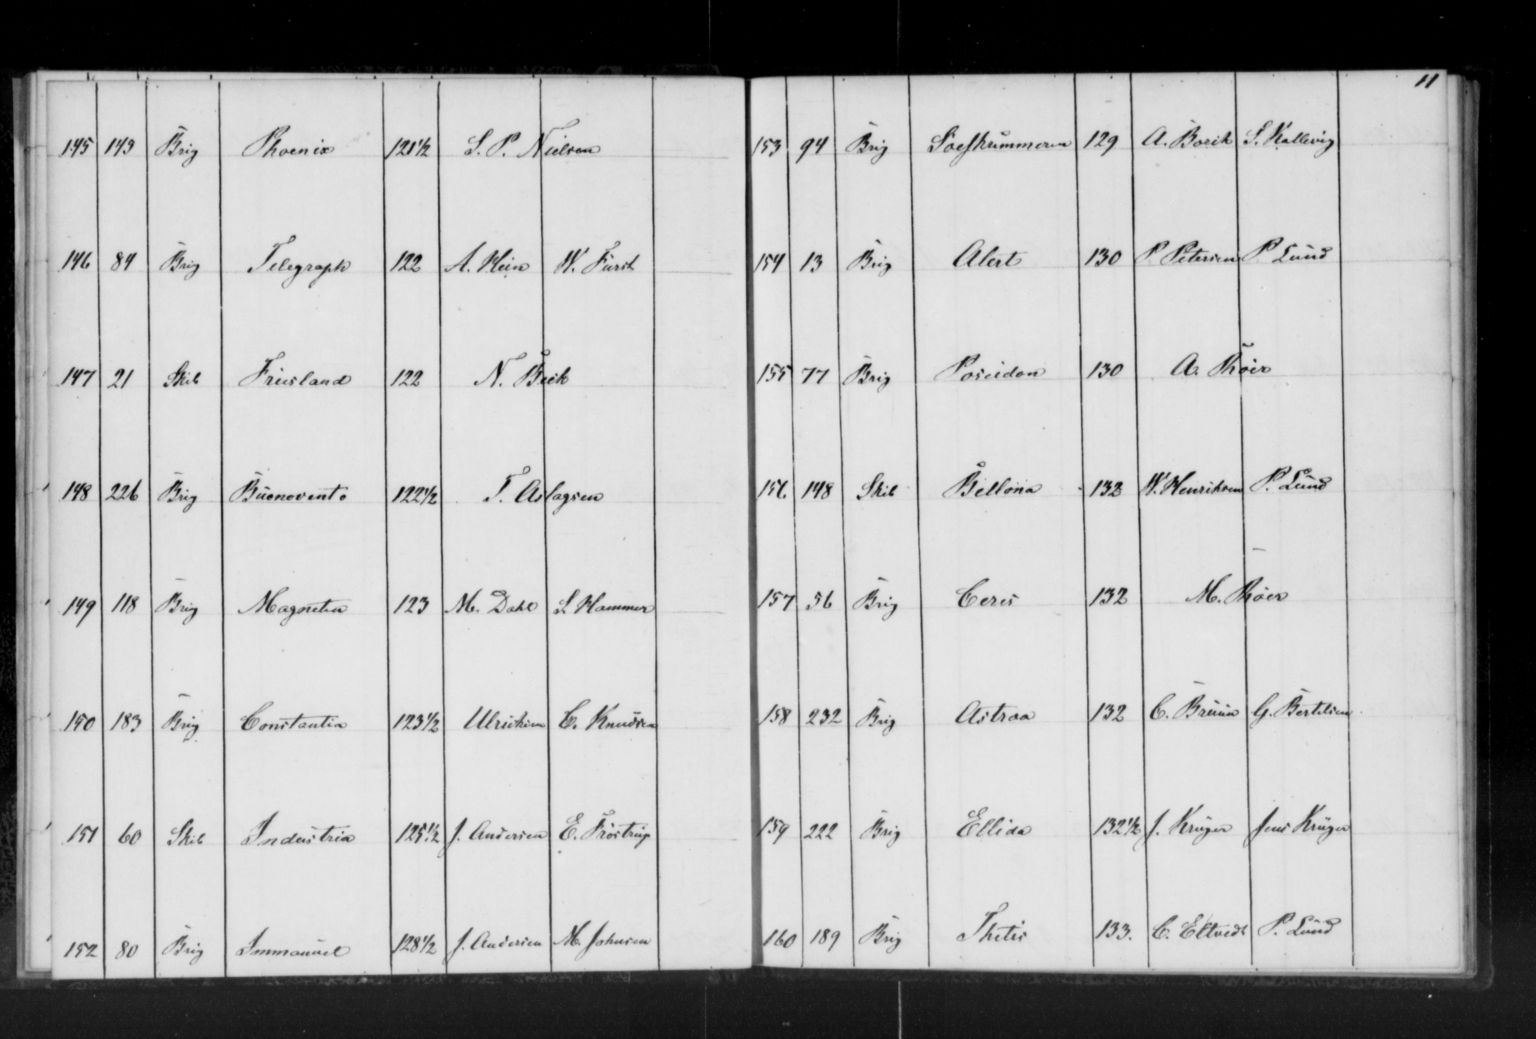 145 143 Brig Phoenix 121½ S. P. Nielsen
146 84 Brig Telegraph 122 A. Hein W. Fürst
147 21 Skib Friesland 122 N. Beck
148 226 Brig Buenovento 122½ T. Aslagsen
149 118 Brig Magneten 123 M. Dahl S. Hammer
150 183 Brig Constantia 123½ Ulrichsen C. Knudsen
151 60 Skib Industria 125½ J. Andersen E. Fröstrup
152 80 Brig Immanuel 128½ J. Andersen M. Johnsen
11
153 94 Brig 129 A. Borik S. Kallevig
154 13 Brig Alert 130 P. Petersen P. Lund
155 77 Brig Poseidon 130 A. Thöer
156 148 Skib Bellona 132 W. Henriksen P. Lund
157 56 Brig Ceres 132 M. Thöer
158 232 Brig Astraa 132 C. Bruun G. Bertelsen
159 222 Brig Ellida 132½ J. Krüger Jens Krüger
160 189 Brig Thetis 133. C. Eltvedt P. Lund